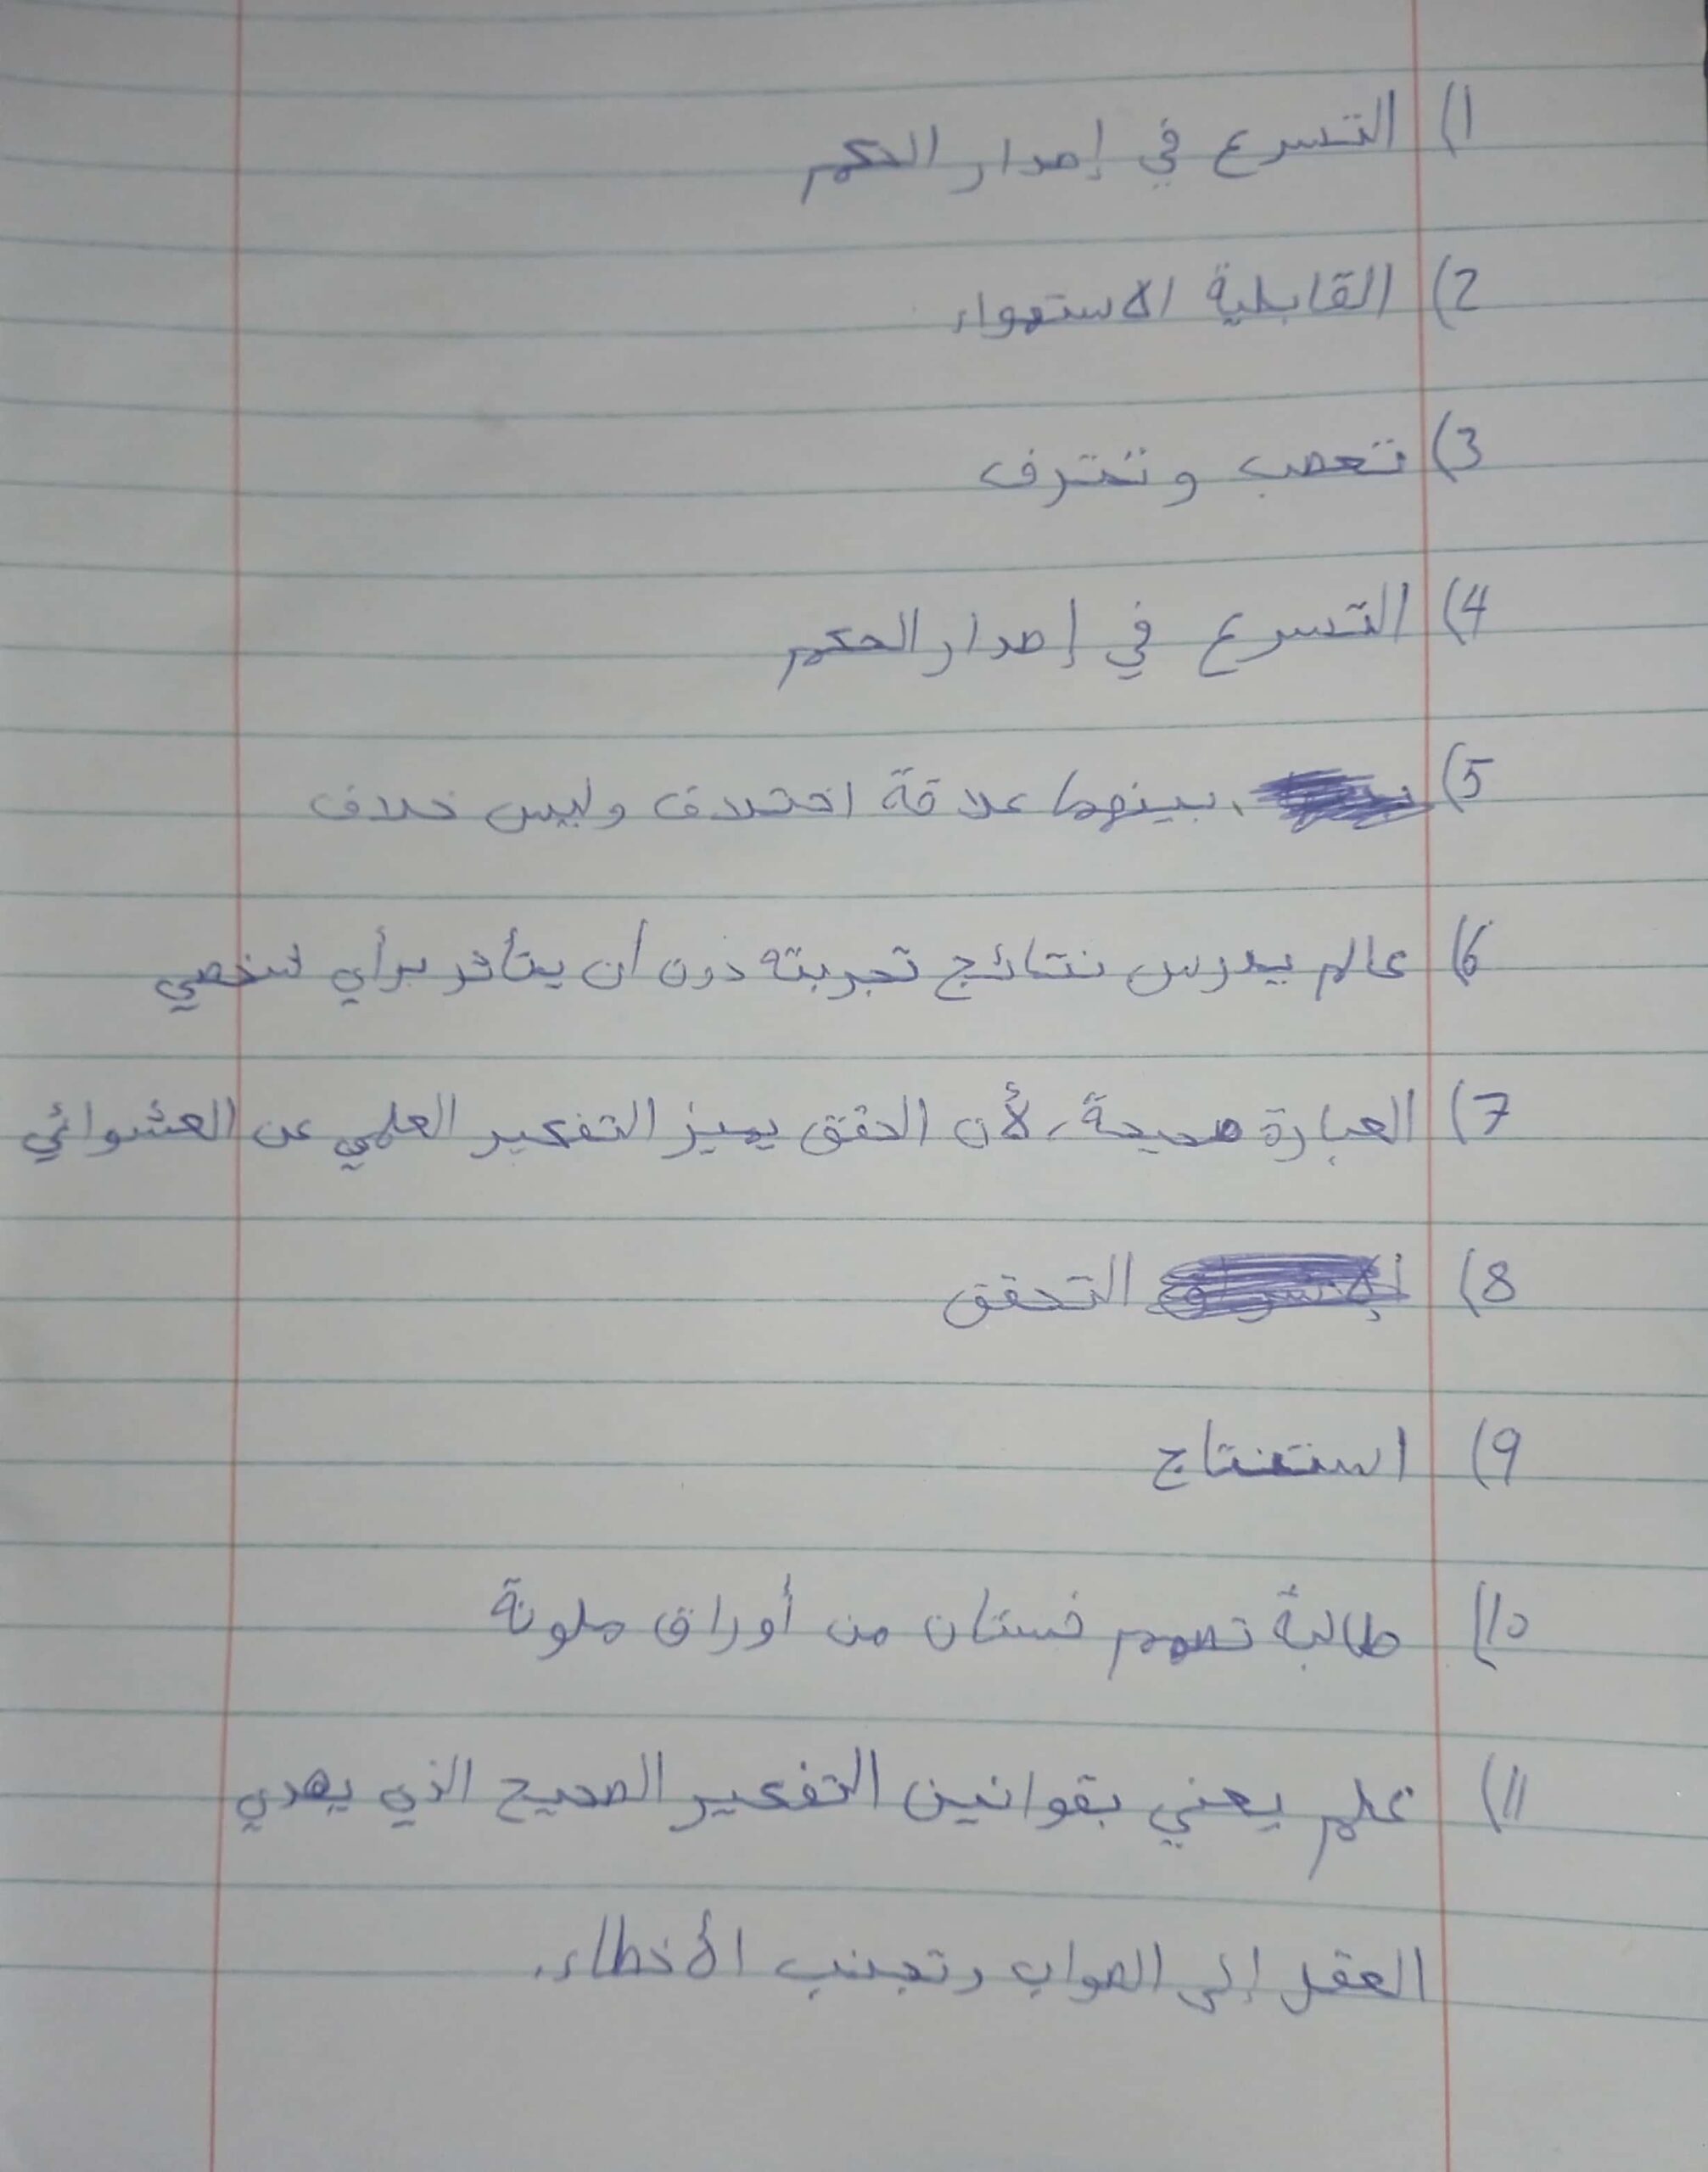 1) التسرع في إصدار الحكم
2) القابلية الاستهواء
3) تعصب وتترف
4) التسرع في إصدار الحكم
5) بينهما علاقة اختلاف وليس خلاف
6) عالم يدرس نتائج تجربته دون أن يتأثر برأي شخصي
7) العبارة صحيحة، لأن الحقق يميز التفكير العلمي عن العشوائي
8) التحقق
9) استنتاج
10) طالبة تصمم فستان من أوراق ملونة
11) علم يعني بقوانين التفكير الصحيح الذي يهدي
العقل إلى الصواب وتجنب الأخطاء.